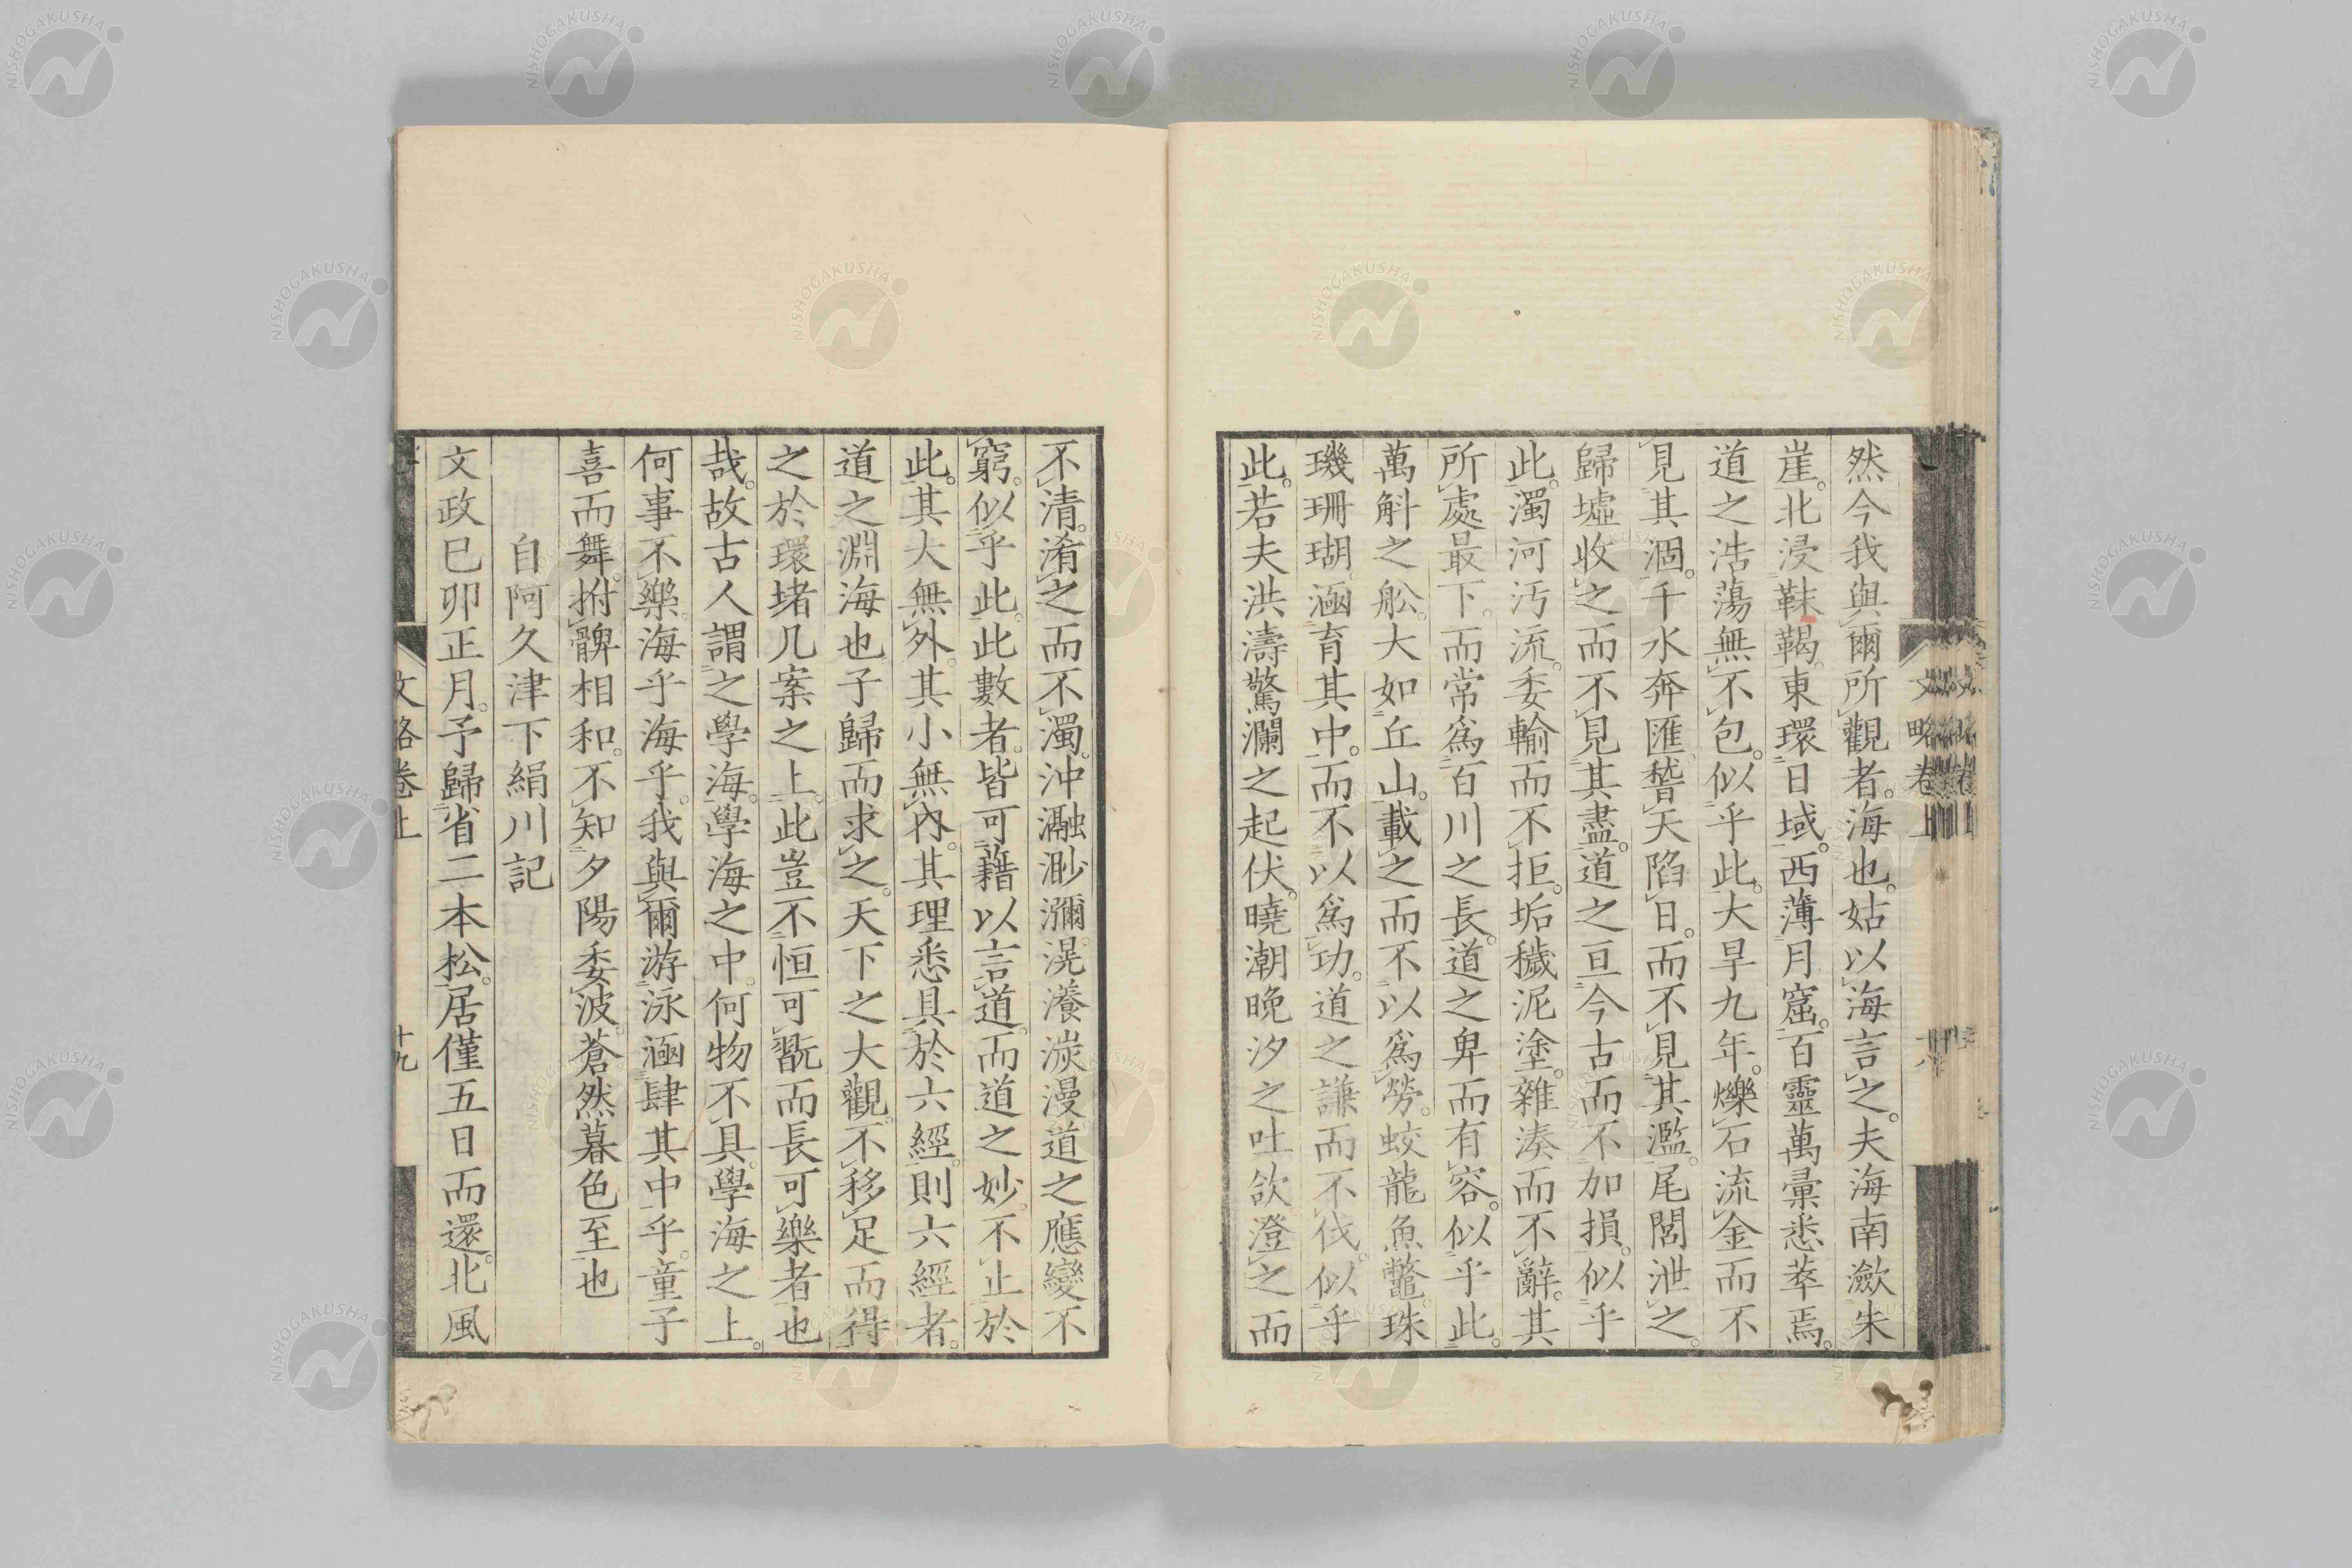 然今我與爾所觀者。海也。姑以海言之。夫海南瀲朱
崖。北浸靺鞨。東環日域。西薄月窟。百靈萬彙悉萃焉。
道之浩蕩無不包。似乎此。大旱九年。爍石流金而不
見其涸。千水奔匯。聱天陷日。而不見其濫。尾閭泄之。
歸墟收之而不見其盡。道之亘今古而不加損。似乎
此。濁河汚流。委輸而不拒。垢穢泥塗。雜湊而不辭。其
所處最下。而常爲百川之長。道之卑而有容。似乎此。
萬斛之舩。大如丘山。載之而不以爲勞。蛟龍魚鼈。珠
璣珊瑚。涵育其中。而不以爲功。道之謙而不伐。似乎
此。若夫洪濤驚瀾之起伏。曉潮晚汐之吐欱。澄之而
文略卷上
十八
不清。淆之而不濁。沖瀜渺瀰。滉瀁漭漫道之應變不
窮。似乎此。此數者。皆可藉以言道。而道之妙。不止於
此。其大無外。其小無內。其理悉具於六經。則六經者。
道之淵海也。子歸而求之。天下之大觀。不移足而得
之於環堵几案之上。此豈不恒可翫而長可樂者也
哉。故古人謂之學海。學海之中。何物不具。學海之上。
何事不樂。海乎海乎。我與爾游泳涵肆其中乎。童子
喜而舞。拊髀相和。不知夕陽委波。蒼然暮色至也
自阿久津下絹川記
文政巳卯正月。予歸省二本松。居僅五日而還。北風
文略卷上
十九
NISHOGAKUSHA